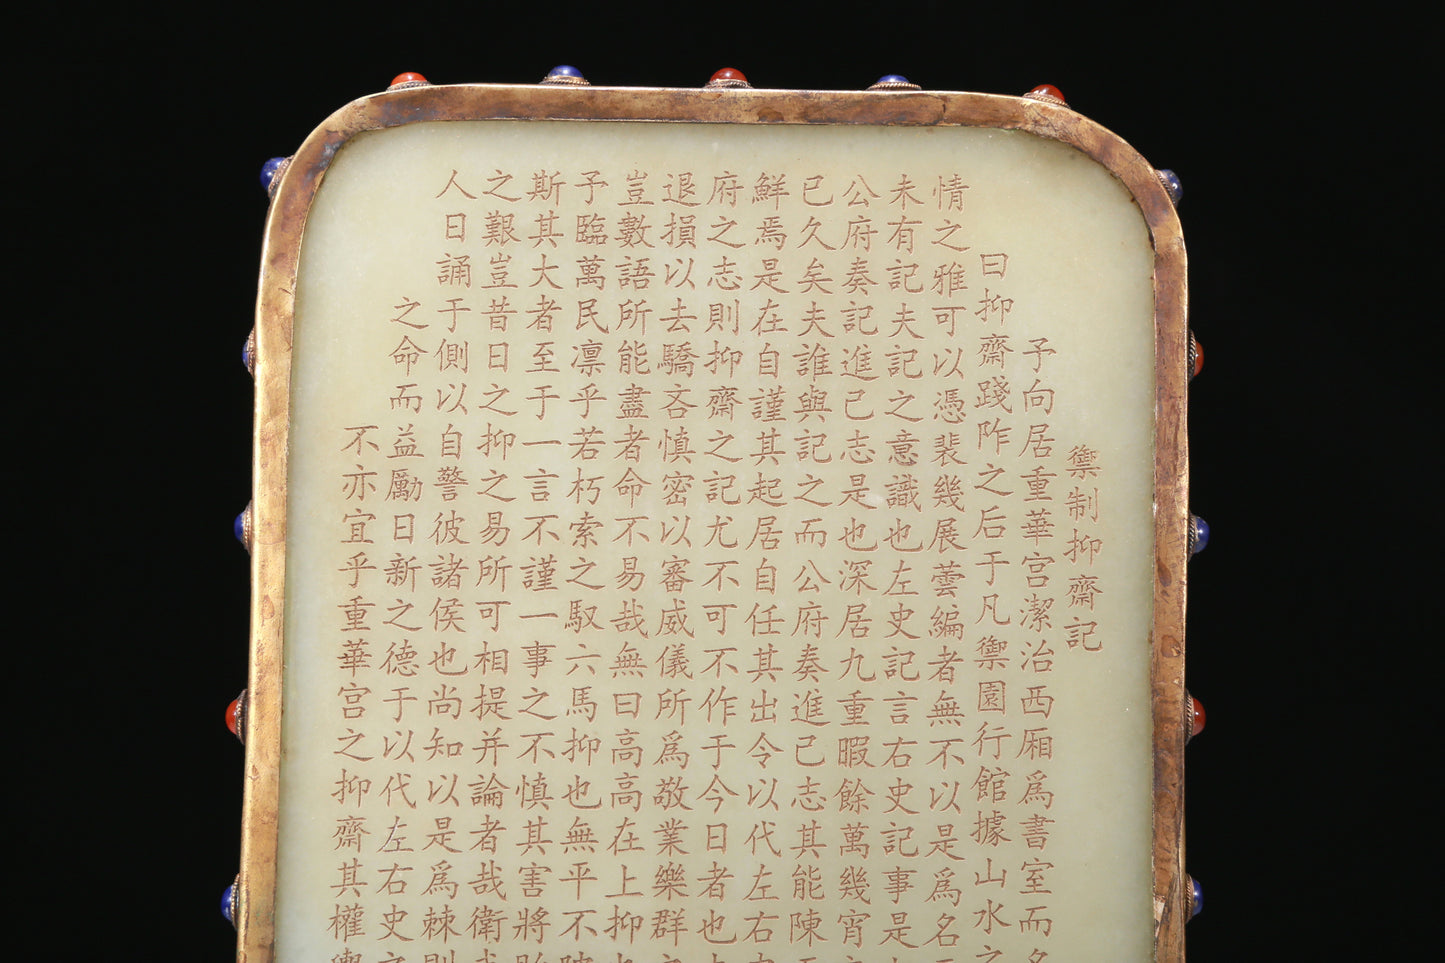 御制抑齋記
予向居重華宮潔治西厢爲書室而名
曰抑齋踐阼之后于凡御園行館據山水之
情之雅可以憑裴幾展蕓編者無不以是爲名
未有記夫記之意識也左史記言右史記事是
公府奏記進己志是也深居九重暇餘萬幾宵
已久矣夫誰與記之而公府奏進己志其能陳
鮮焉是在自謹其起居自任其出令以代左右
府之志則抑齋之記尤不可不作于今日者也
退損以去驕吝慎密以審威儀所爲敬業樂群
豈數語所能盡者命不易哉無曰高高在上抑
予臨萬民凛乎若朽索之馭六馬抑也無平不
斯其大者至于一言不謹一事之不慎其害將
之艱豈昔日之抑之易所可相提并論者哉衛
人曰誦于側以自警彼諸侯也尚知以是爲棘
之命而益勵日新之德于以代左右史
不亦宜乎重華宮之抑齋其權輿